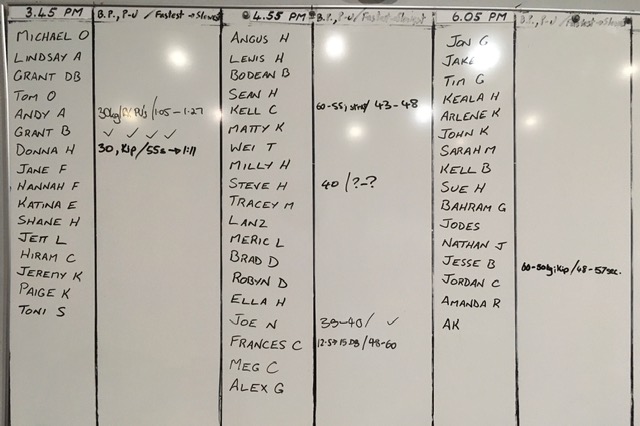 3.45 PM
B.P., P-U / Fastest → Slowest
MICHAEL O
LINDSAY A
GRANT DB
TOM O
ANDY A 30kg/ /1:05-1:27
GRANT B ✓ ✓ ✓ ✓
DONNA H 30, Kip/55s→1:11
JANE F
HANNAH F
KATINA E
SHANE H
JETT L
HIRAM C
JEREMY K
PAIGE K
TONI S
4.55 PM
B.P., P-U / Fastest → Slowest
ANGUS H
LEWIS H
BODEAN B
SEAN H
KELL C 60-55, strict/ 43-48
MATTY K
WEI T
MILLY H
STEVE H 40 /?-?
TRACEY M
LANZ
MERIC L
BRAD D
ROBYN D
ELLA H
JOE N 39-40/ ✓
FRANCES C 12.5→15 DB/48-60
MEG C
ALEX G
6.05 PM
B.P., P-U / Fastest → Slowest
JON G
JAKE
TIM G
KEALA H
ARLENE K
JOHN K
SARAH M
KELL B
SUE H
BAHRAM G
JODES
NATHAN J
JESSE B 60-50kg; Kip/48-57sec.
JORDAN C
AMANDA R
AK